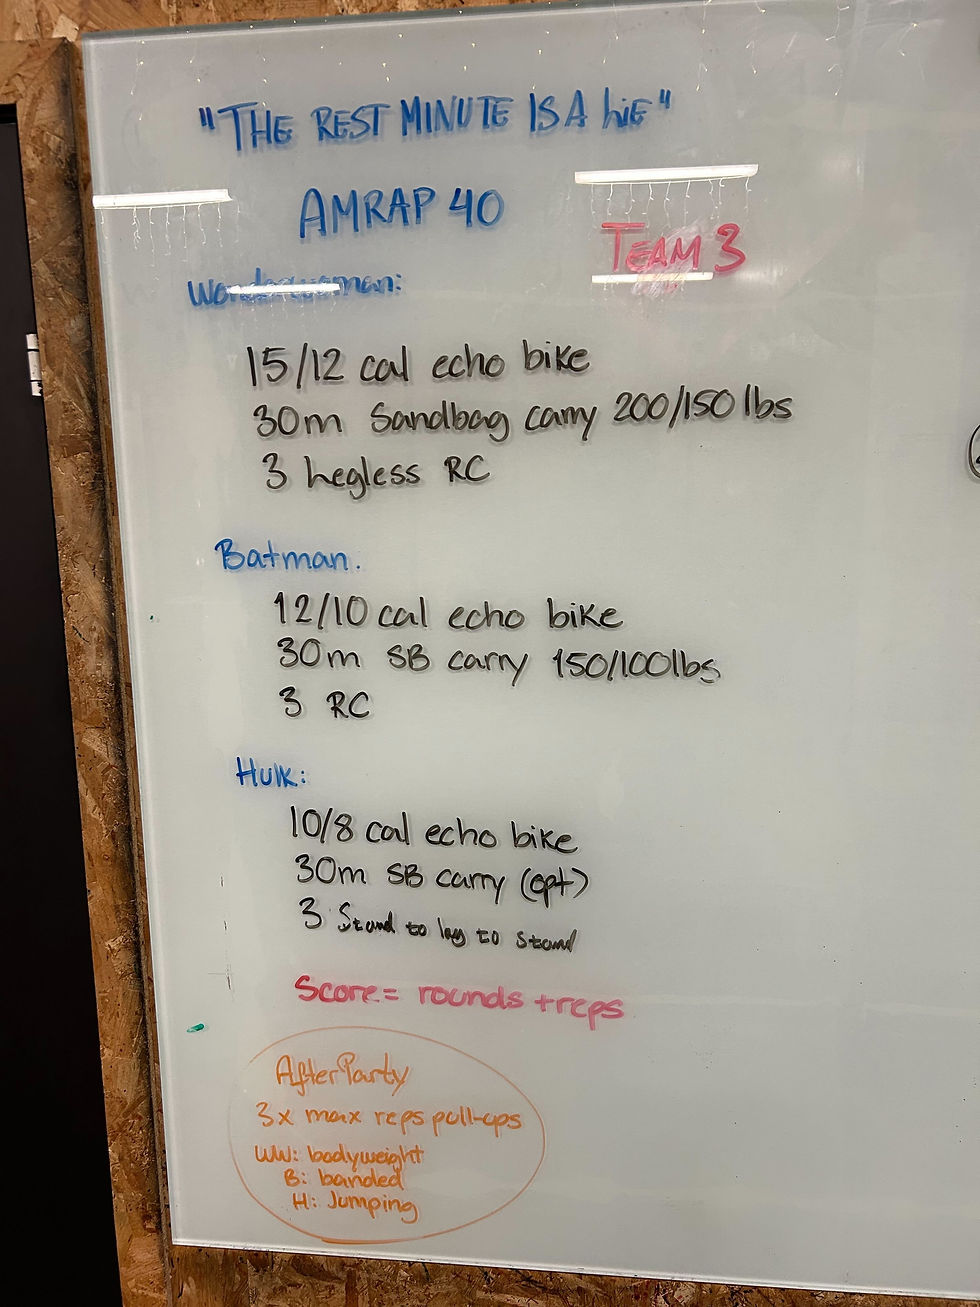 "THE REST MINUTE IS A LiE"
AMRAP 40
TEAM 3
Wonderwoman:
15/12 cal echo bike
30m Sandbag carry 200/150 lbs
3 legless RC
Batman.
12/10 cal echo bike
30m SB carry 150/100lbs
3 RC
Hulk:
10/8 cal echo bike
30m SB carry (opt)
3 Stand to lay to stand
Score= rounds +reps
AfterParty
3x max reps pull-ups
WW: bodyweight
B: banded
H: Jumping